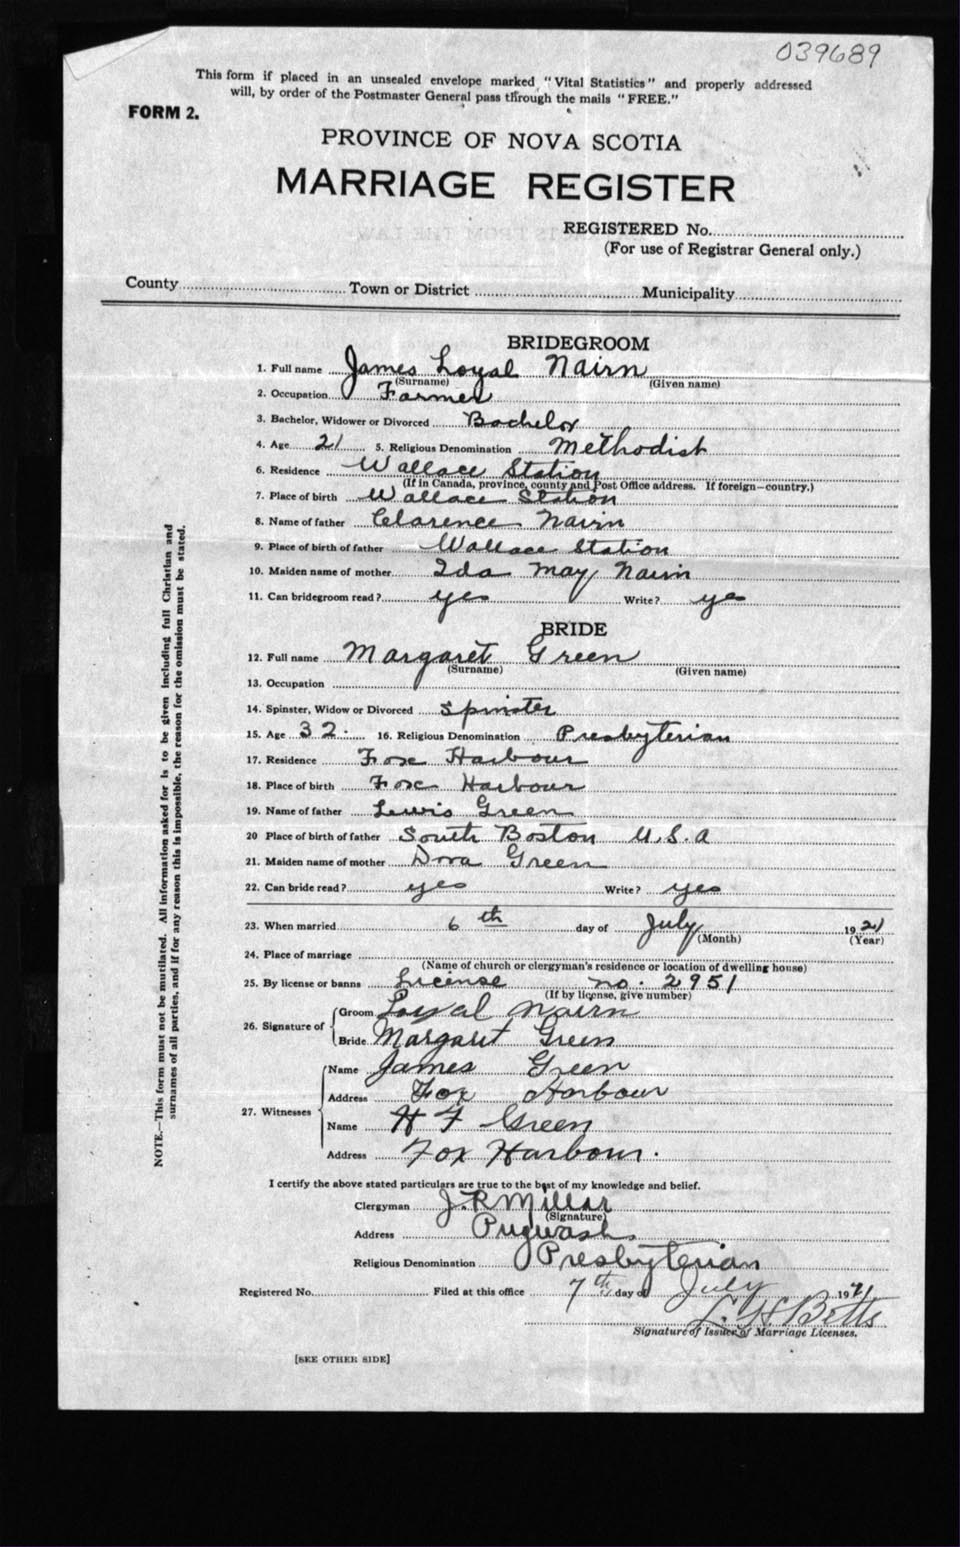 039689
This form if placed in an unsealed envelope marked "Vital Statistics" and properly addressed
will, by order of the Postmaster General pass through the mails "FREE."
FORM 2.
PROVINCE OF NOVA SCOTIA
MARRIAGE REGISTER
REGISTERED No.
(For use of Registrar General only.)
County Town or District Municipality
BRIDEGROOM
1. Full name James Loyal Nairn
(Surname) (Given name)
2. Occupation Farmer
3. Bachelor, Widower or Divorced Bachelor
4. Age 21 5. Religious Denomination Methodist
6. Residence Wallace Station
(If in Canada, province, county and Post Office address. If foreign—country.)
7. Place of birth Wallace Station
8. Name of father Clarence Nairn
9. Place of birth of father Wallace Station
10. Maiden name of mother Ida May Nairn
11. Can bridegroom read? yes Write? yes
BRIDE
12. Full name Margaret Green
(Surname) (Given name)
13. Occupation
14. Spinster, Widow or Divorced Spinster
15. Age 32. 16. Religious Denomination Presbyterian
17. Residence Fox Harbour
18. Place of birth Fox Harbour
19. Name of father Lewis Green
20 Place of birth of father South Boston U.S.A
21. Maiden name of mother Dora Green
22. Can bride read? yes Write? yes
23. When married 6th day of July 1921
(Month) (Year)
24. Place of marriage
(Name of church or clergyman's residence or location of dwelling house)
25. By license or banns License no. 2951
(If by license, give number)
26. Signature of Groom Loyal Nairn
Bride Margaret Green
27. Witnesses Name James Green
Address Fox Harbour
Name H F Green
Address Fox Harbour.
I certify the above stated particulars are true to the best of my knowledge and belief.
Clergyman J. R Millar
(Signature)
Address Pugwash.
Religious Denomination Presbyterian
Registered No. Filed at this office 7th day of July 1921
L. H Betts
Signature of Issuer of Marriage Licenses.
[SEE OTHER SIDE]
NOTE.—This form must not be mutilated. All information asked for is to be given including full Christian and
surnames of all parties, and if for any reason this is impossible, the reason for the omission must be stated.